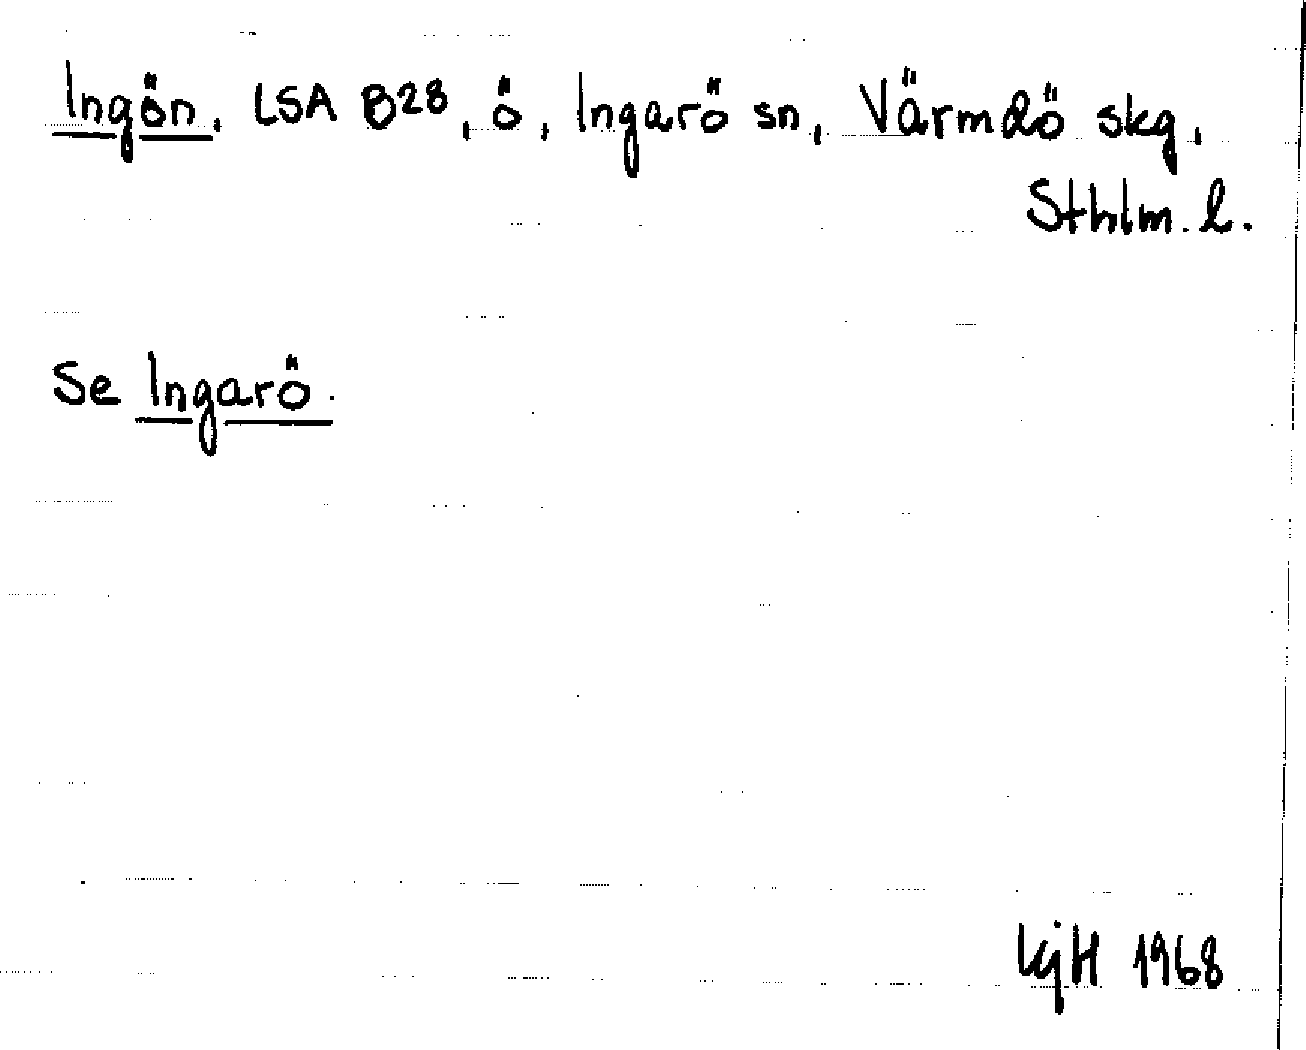 Ingön, LSA B28, ö, Ingarö sn, Värmdö skg,
Sthlm. l.
Se Ingarö.
KjH 1968